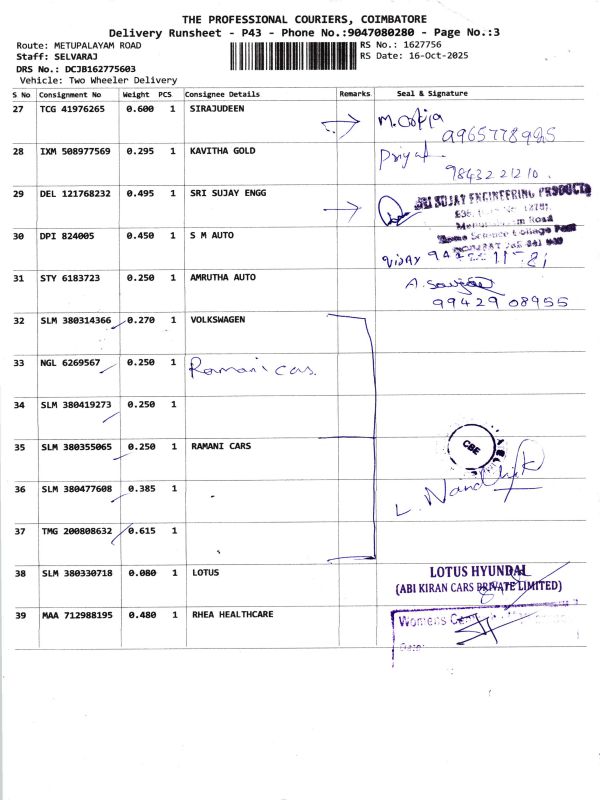 THE PROFESSIONAL COURIERS, COIMBATORE
Delivery Runsheet - P43 - Phone No.:9047080280 - Page No.:3
Route: METUPALAYAM ROAD RS No.: 1627756
Staff: SELVARAJ RS Date: 16-Oct-2025
DRS No.: DCJB162775603
Vehicle: Two Wheeler Delivery
S No Consignment No Weight PCS Consignee Details Remarks Seal & Signature
27 TCG 41976265 0.600 1 SIRAJUDEEN
9965778985
28 IXM 508977569 0.295 1 KAVITHA GOLD
9843221210.
29 DEL 121768232 0.495 1 SRI SUJAY ENGG
SRI SUJAY ENGINEERING PRODUCTS
Road
Home Science College Post
30 DPI 824005 0.450 1 S M AUTO
VIJAY
31 STY 6183723 0.250 1 AMRUTHA AUTO
99429 08955
32 SLM 380314366 0.270 1 VOLKSWAGEN
33 NGL 6269567 0.250 1 Ramani cas.
34 SLM 380419273 0.250 1
35 SLM 380355065 0.250 1 RAMANI CARS
CBE
36 SLM 380477608 0.385 1
37 TMG 200808632 0.615 1
38 SLM 380330718 0.080 1 LOTUS
LOTUS HYUNDAI
(ABI KIRAN CARS PRIVATE LIMITED)
39 MAA 712988195 0.480 1 RHEA HEALTHCARE
Womens
Date: